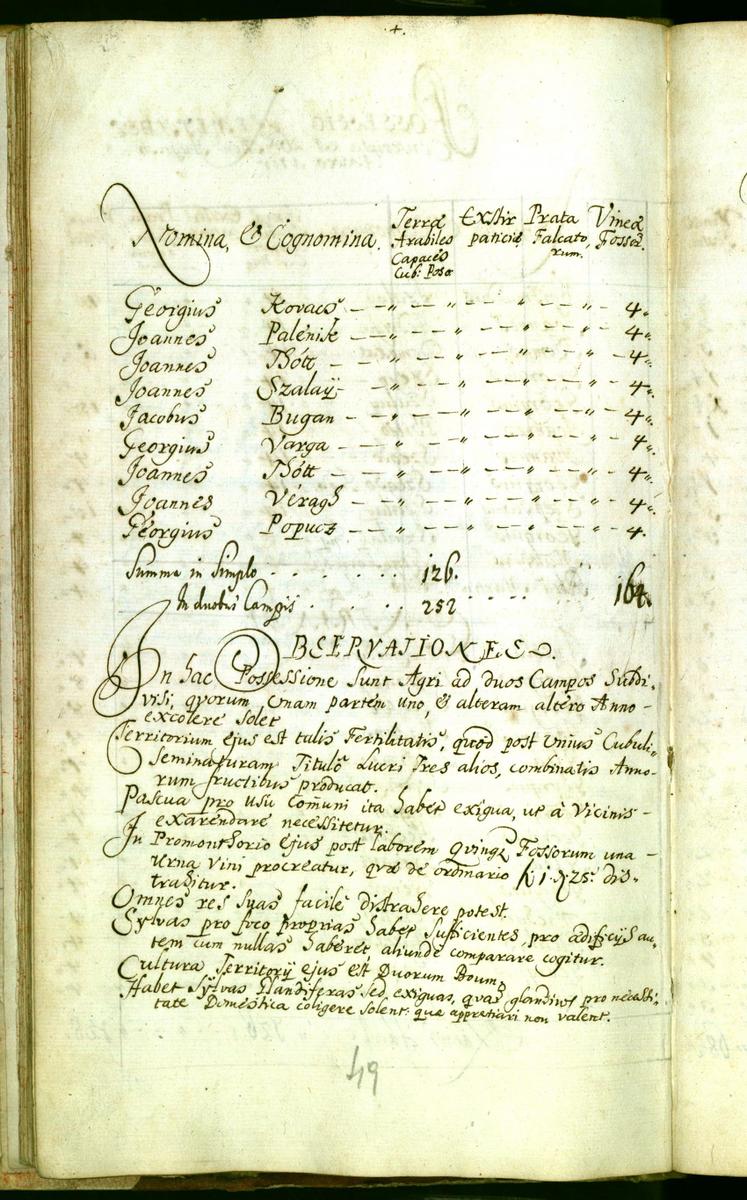 Nomina, & Cognomina. Terræ Arabiles Capaces Cub: Poson Exstir paticiæ Prata Falcato, rum. Vineæ Fossor.
Georgius Kovacs — „ — — „ — — „ — — „ — 4„
Joannes Palenik — „ — — „ — — „ — — „ — 4„
Joannes Thótt — „ — — „ — — „ — — „ — 4„
Joannes Szalaÿ — „ — — „ — — „ — — „ — 4„
Jacobus Bugan — „ — — „ — — „ — — „ — 4„
Georgius Varga — „ — — „ — — „ — — „ — 4„
Joannes Thótt — „ — — „ — — „ — — „ — 4„
Joannes Véragh — „ — — „ — — „ — — „ — 4„
Georgius Popucz — „ — — „ — — „ — — „ — 4.
Summa in Simplo . . . . . . 126.
In duobus Campis . . . . . 252 . . . . . 164.
OBSERVATIONES.
In hac Possessione Sunt Agri ad duos Campos Subdi,
visi, qvorum, Unam partem uno, & alteram altero Anno —
excolere Solet
Territorium ejus est talis Fertilitatis, quod post Unius Cubuli
Seminaturam Titulô Lucri Tres alios, combinatis Anno,
rum fructibus producat.
Pascua pro usu Com̄uni ita habet exigua, ut à Vicinis —
exarendare necessitetur.
In Promonthorio ejus post laborem Qvinq3 Fossorum una —
Urna Vini procreatur, quæ de ordinario f 1. x 25. dis,
trahitur.
Omnes res suas facile distrahere potest.
Sylvas pro foco proprias habet Sufficientes, pro ædificijs au,
tem cum nullas haberet, aliunde comparare cogitur.
Cultura Territorÿ ejus est Duorum Boum.
Habet Sylvas Glandiferas sed exiguas, quas glandius pro necessi,
tate Domestica coligere solent: quæ appretiari non valent.
49